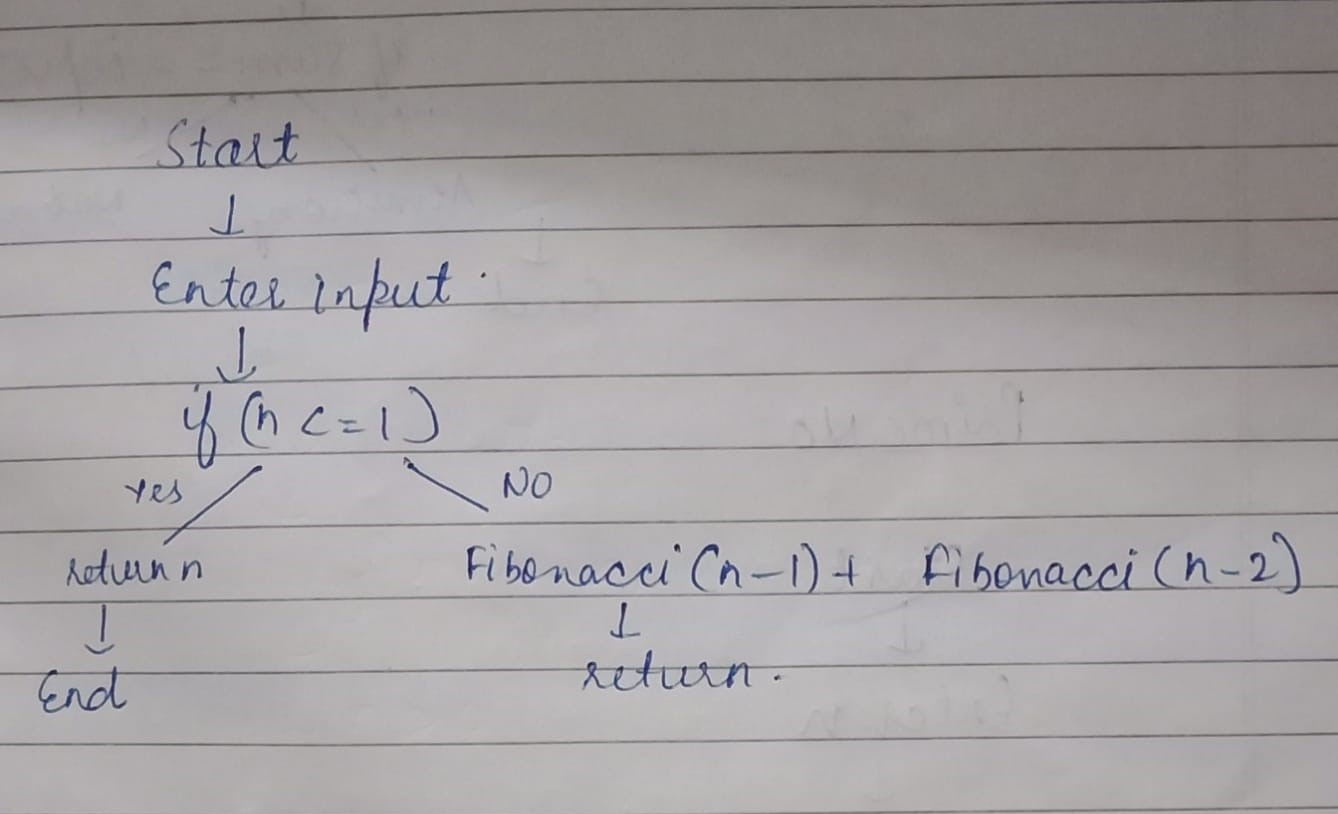 Start
↓
Enter input.
↓
if (n <= 1)
Yes NO
return n Fibonacci (n-1) + Fibonacci (n-2)
↓ ↓
End return.